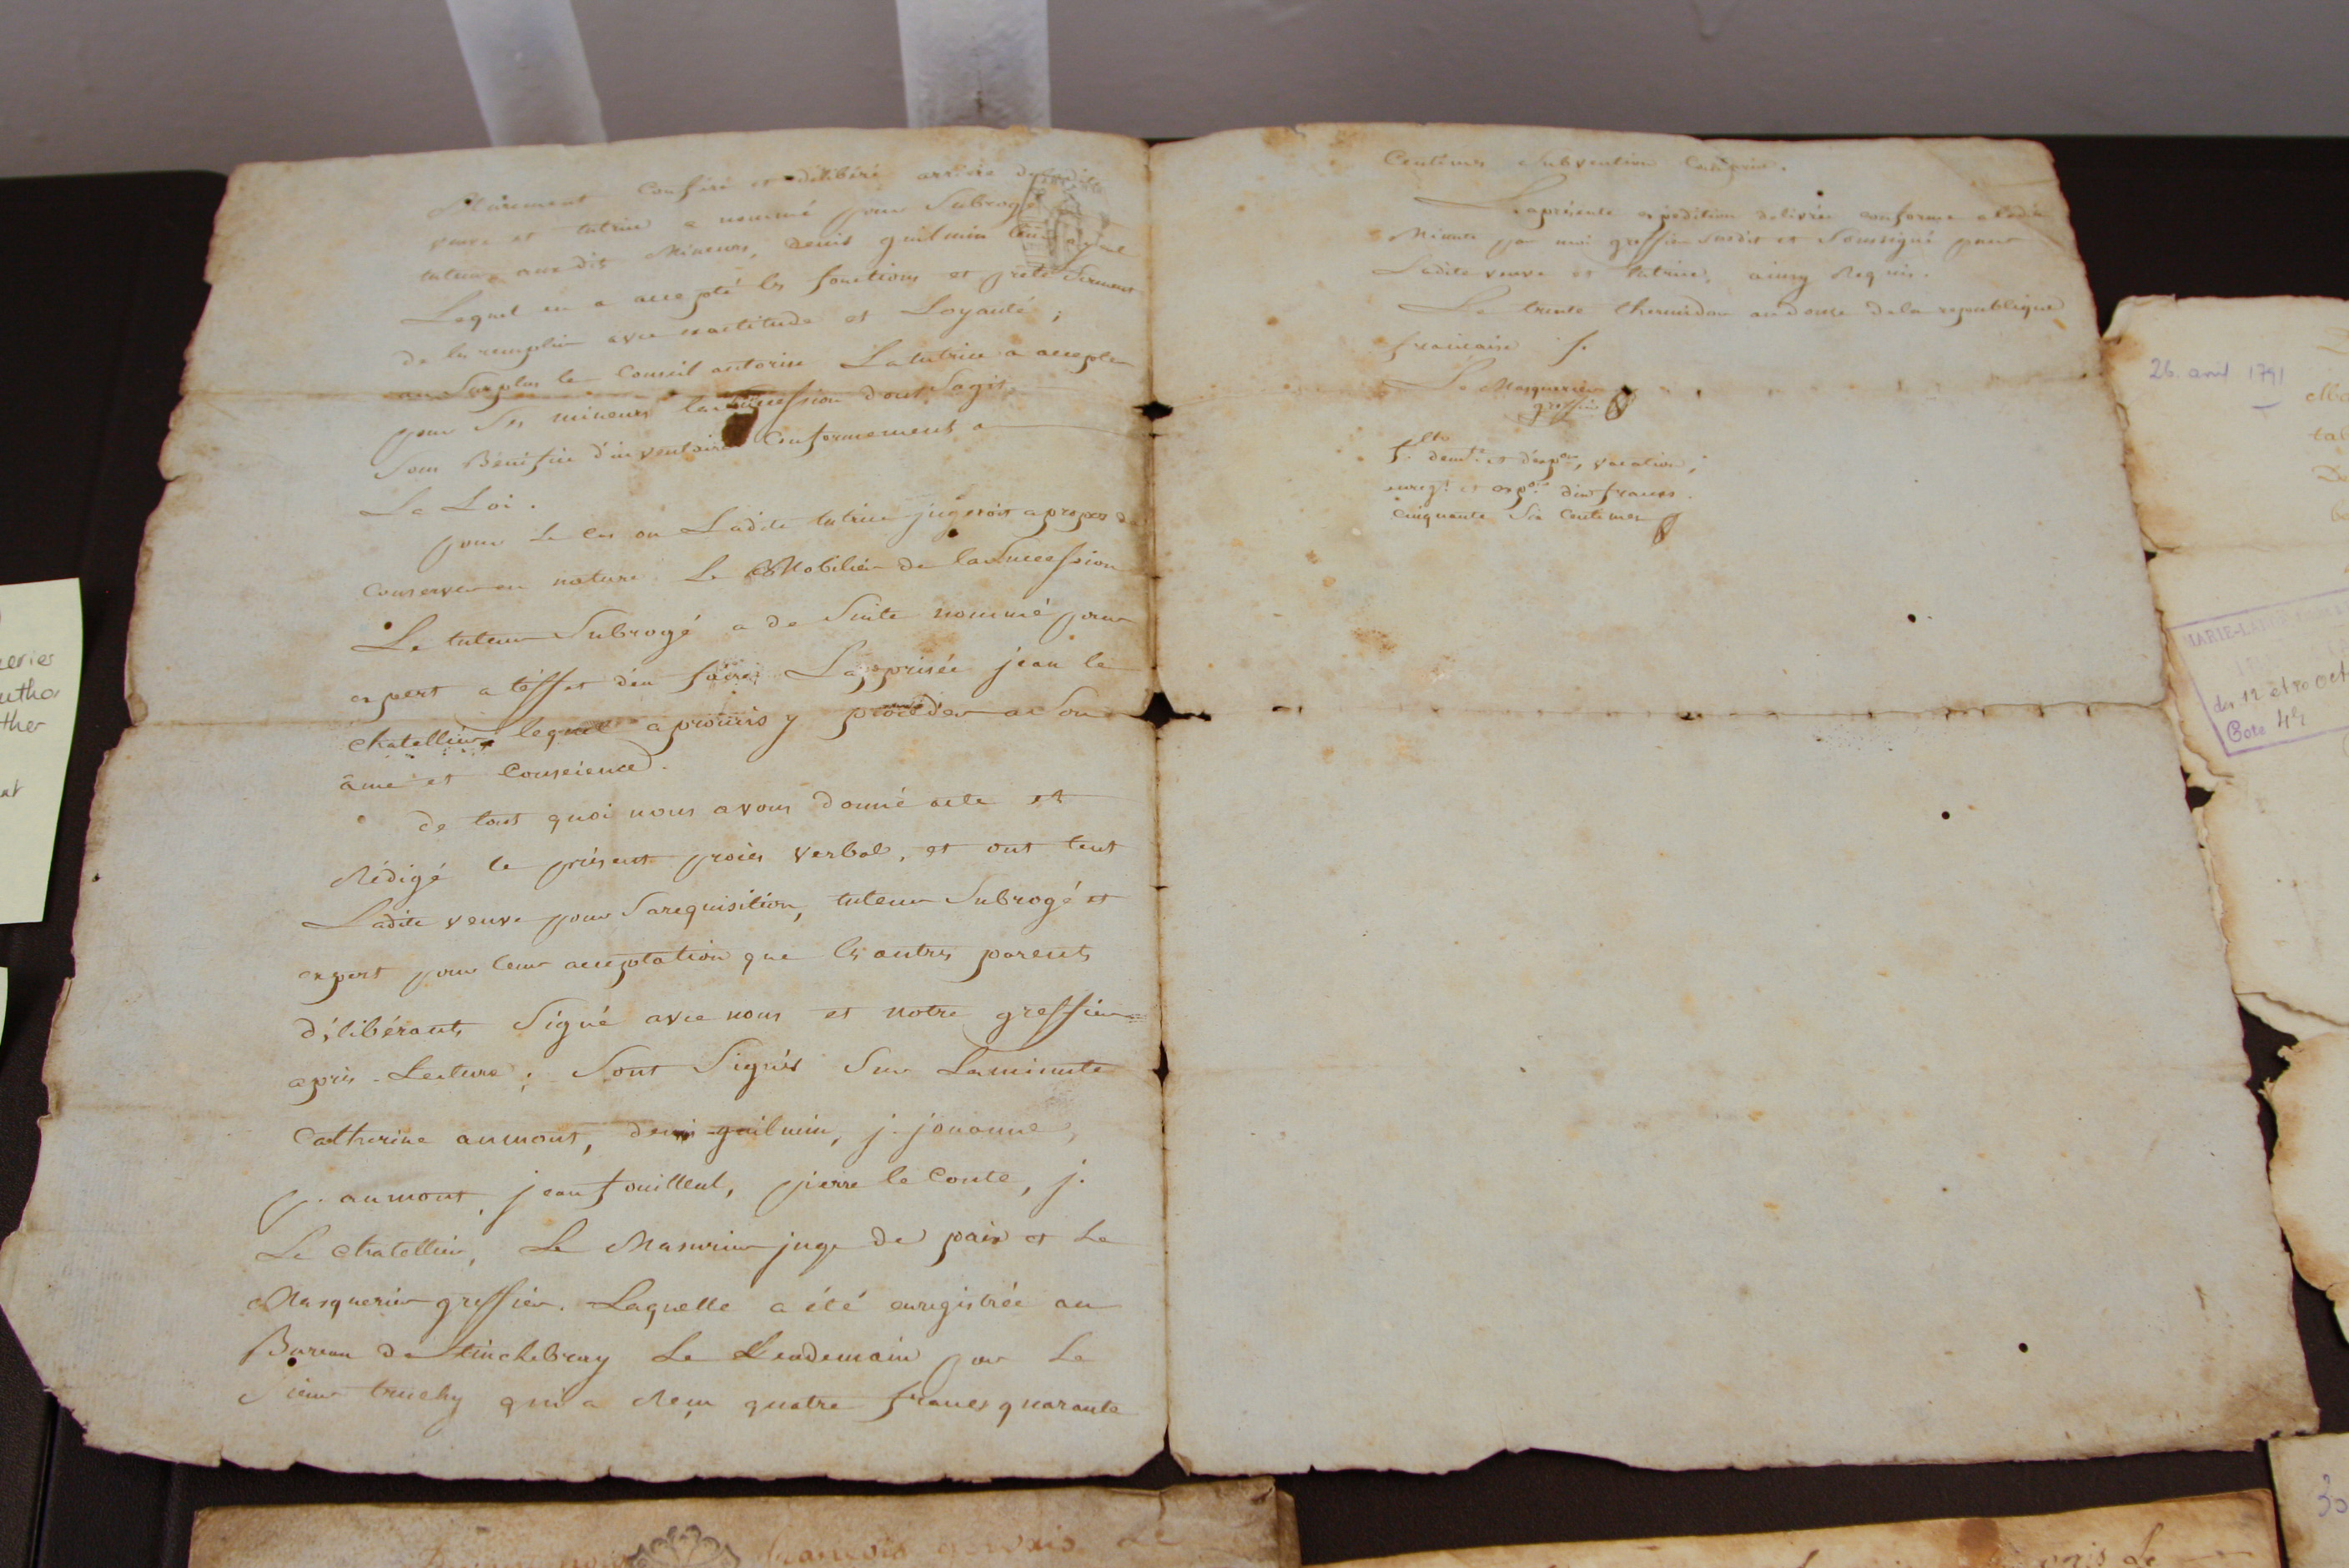 Mûrement conféré et délibéré arrière de ladite
veuve et tutrice a nommé pour Subrogé
tuteur auxdits Mineurs, Denis guilmin leur ayeul
Lequel en a accepté les fonctions et preté Serment
de les remplir avec exactitude et Loyauté ;
au Surplus le Conseil autorise La tutrice a accepter
pour Ses mineurs la Succession dont Sagit
Sous Bénéfice d'inventaire Conformement a
La Loi .
pour le cas ou Ladite tutrice jugeroit apropos de
conserver en nature Le Mobilier de la Succession
Le tuteur Subrogé a de Suite nommé pour
expert a l'effet d'en faire L'apprisée jean le
chatellier, lequel a promis y procéder a Son
âme et Conscience .
de tout quoi nous avons donné acte et
Rédigé le présent procès verbal, et ont tent
Ladite veuve pour Sa requisition, tuteur Subrogé et
expert pour leur acceptation que les autres parents
délibérants Signé avec nous et notre greffier
après Lecture ; Sont Signés Sur La minute
Catherine aumont, denis guilmin, j. jouanne,
p. aumont, jean fouilleul, pierre le Conte, j.
Le chatellier, Le Masurier juge de paix et Le
Masquerier greffier. Laquelle a été enregistrée au
Bureau de tinchebray Le Lendemain par Le
Sieur truchy qui a Reçu quatre francs quarante
Centimes Subvention Comprise .
La présente expédition delivrée conforme a ladite
Minute par moi greffier Susdit et Soussigné pour
Ladite veuve et tutrice, ainsy Requis .
Le trente thermidor an douze de la republique
francaise /.
Le Masquerier
greffier
vacation,
enregt. et expon. dix francs
Cinquante Six Centimes
26. avril 1791
MARIE-LA
des 12 et 20 oct
Cote 42
françois gervais Le
30
eries
utho
ther
at